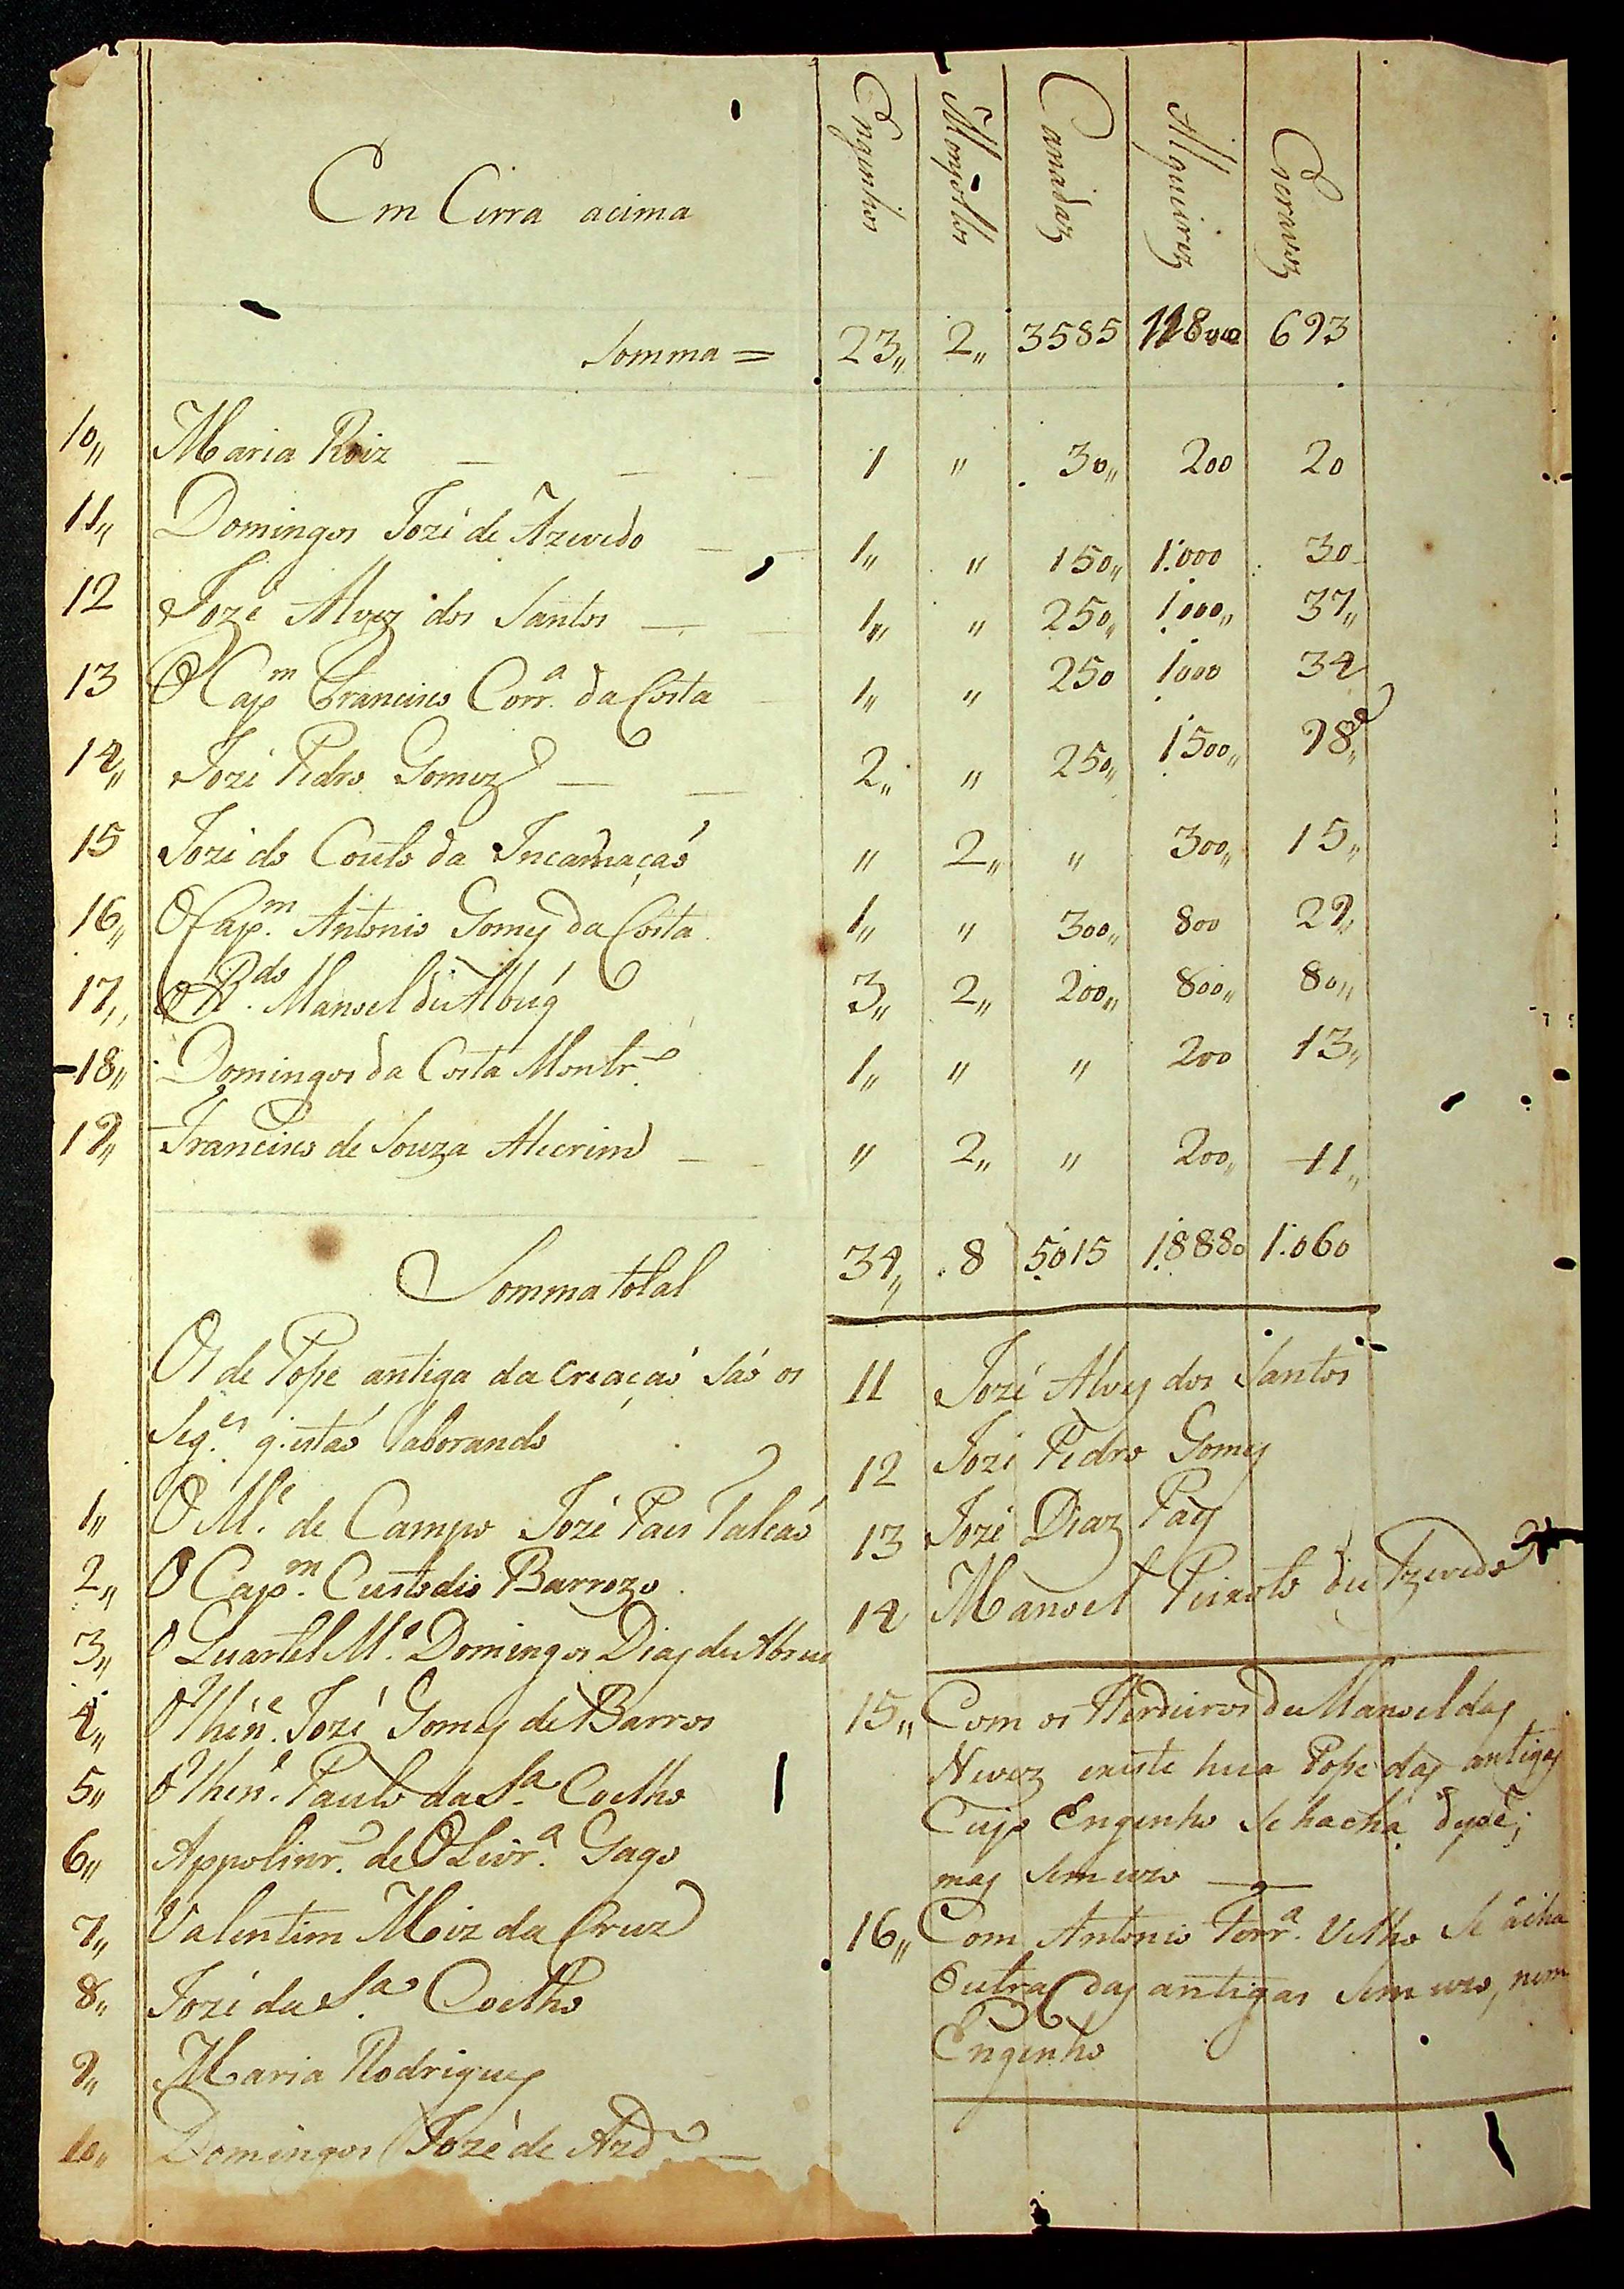 Em Cerra acima Engenhos Monjollos Canadaz Alqueirez Escravoz
Somma = 23,, 2,, 3585 11800 693
10,, Maria Roiz — 1 ,, 30,, 200 20
11,, Domingos Jozé de Azevedo — 1,, ,, 150,, 1:000 30
12 Jozé Alvez dos Santos — 1,, ,, 250,, 1:000,, 37,,
13 O Cap.m Francisco Corr.a da Costa 1,, ,, 250 1000 34
14,, Jozé Pedro Gomez — 2,, ,, 250,, 1500,, 98,,
15 Jozé do Couto da Incarnaçaó ,, 2,, ,, 300,, 15,,
16,, O Cap.m Antonio Gomes da Costa 1,, ,, 300,, 800 29,,
17,, O R.do Manoel de Albuq̃ 3,, 2,, 200,, 800,, 80,,
18,, Domingos da Costa Montr.o 1,, ,, ,, 200 13,,
19,, Francisco de Souza Alecrim — ,, 2,, ,, 200,, 11,,
Somma total 34,, 8 5:015 1:8880 1:060
Os de Posse antiga da creaçaó saó os
Seg.es q. estaó laborando
1,, O M.e de Campo Jozé Paes Falcaó
2,, O Cap.m Custodio Barrozo
3,, O Quartel M.e Domingos Dias de Abreu
4,, O Thén.e Jozé Gomes de Barros
5,, O Then.e Paulo da S.a Coelho
6,, Appolinr.o de Olivr.a Gago
7,, Valentim Miz da Cruz
8,, Jozé da S.a Coelho
9,, Maria Rodrigues
10,, Domingos Jozé de Azd.o —
11 Jozé Alves dos Santos
12 Jozé Pedro Gomes
13 Jozé Diaz Paes
14 Manoel Peixoto de Azevedo
15,, Com os Herdeiros de Manoel das
Nevez existe hua Posse das antigas
Cujo Engenho Se hacha
mas Sem uzo —
16,, Com Antonio Ferr.a Velho Se ácha
Outra das antigas Sem uzo, nem
Engenho